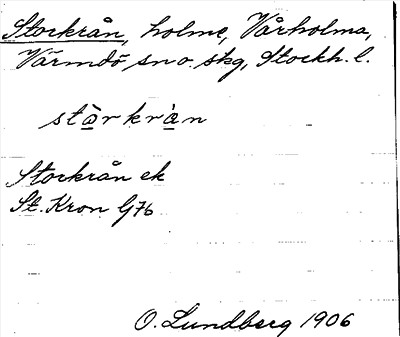 Storkrån, holme, Vårholma,
Värmdö sn o. skg, Stockh. l.
stårkrån
Storkrån ek
St. Kron G76
O. Lundberg 1906